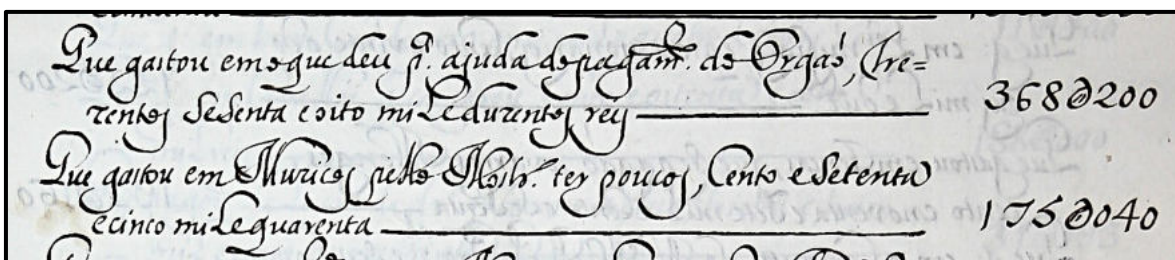 Que gastou em o que deu pª. ajuda do pagamto. do Orgaõ, Tre=
zentos Sesenta e oito mil e duzentos reis 368∂200
Que gastou em Muzicos pello Mostro. ter poucos, Cento e Setenta
e cinco mil e quarenta 175∂040